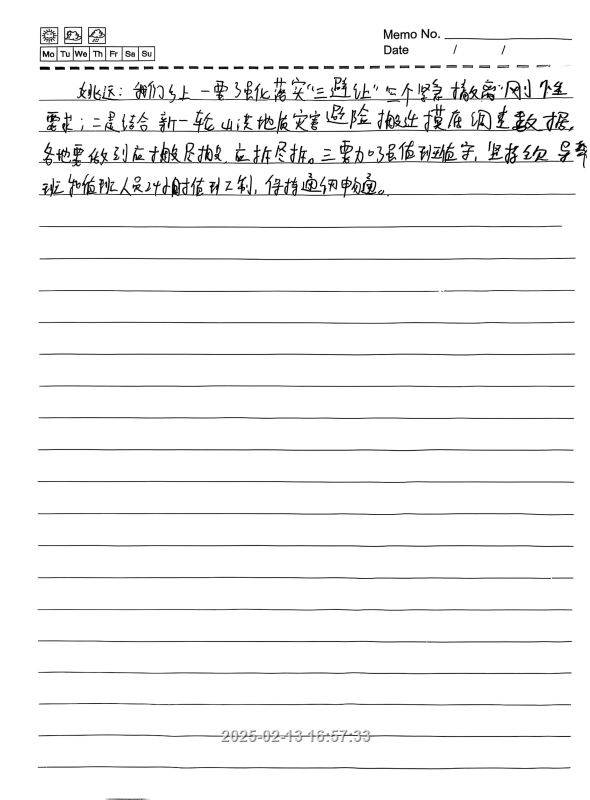 Memo No.
Mo Tu We Th Fr Sa Su
Date / /
姚远：我们乡上一要强化落实“三避让”“三个紧急撤离”刚性
要求；二是结合新一轮山洪地质灾害避险搬迁摸底调查数据，
各地要做到应搬尽搬，应拆尽拆。三要加强值班值守，坚持领导带
班和值班人员24小时值班工制，保持通讯畅通。
2025-02-13 16:57:33